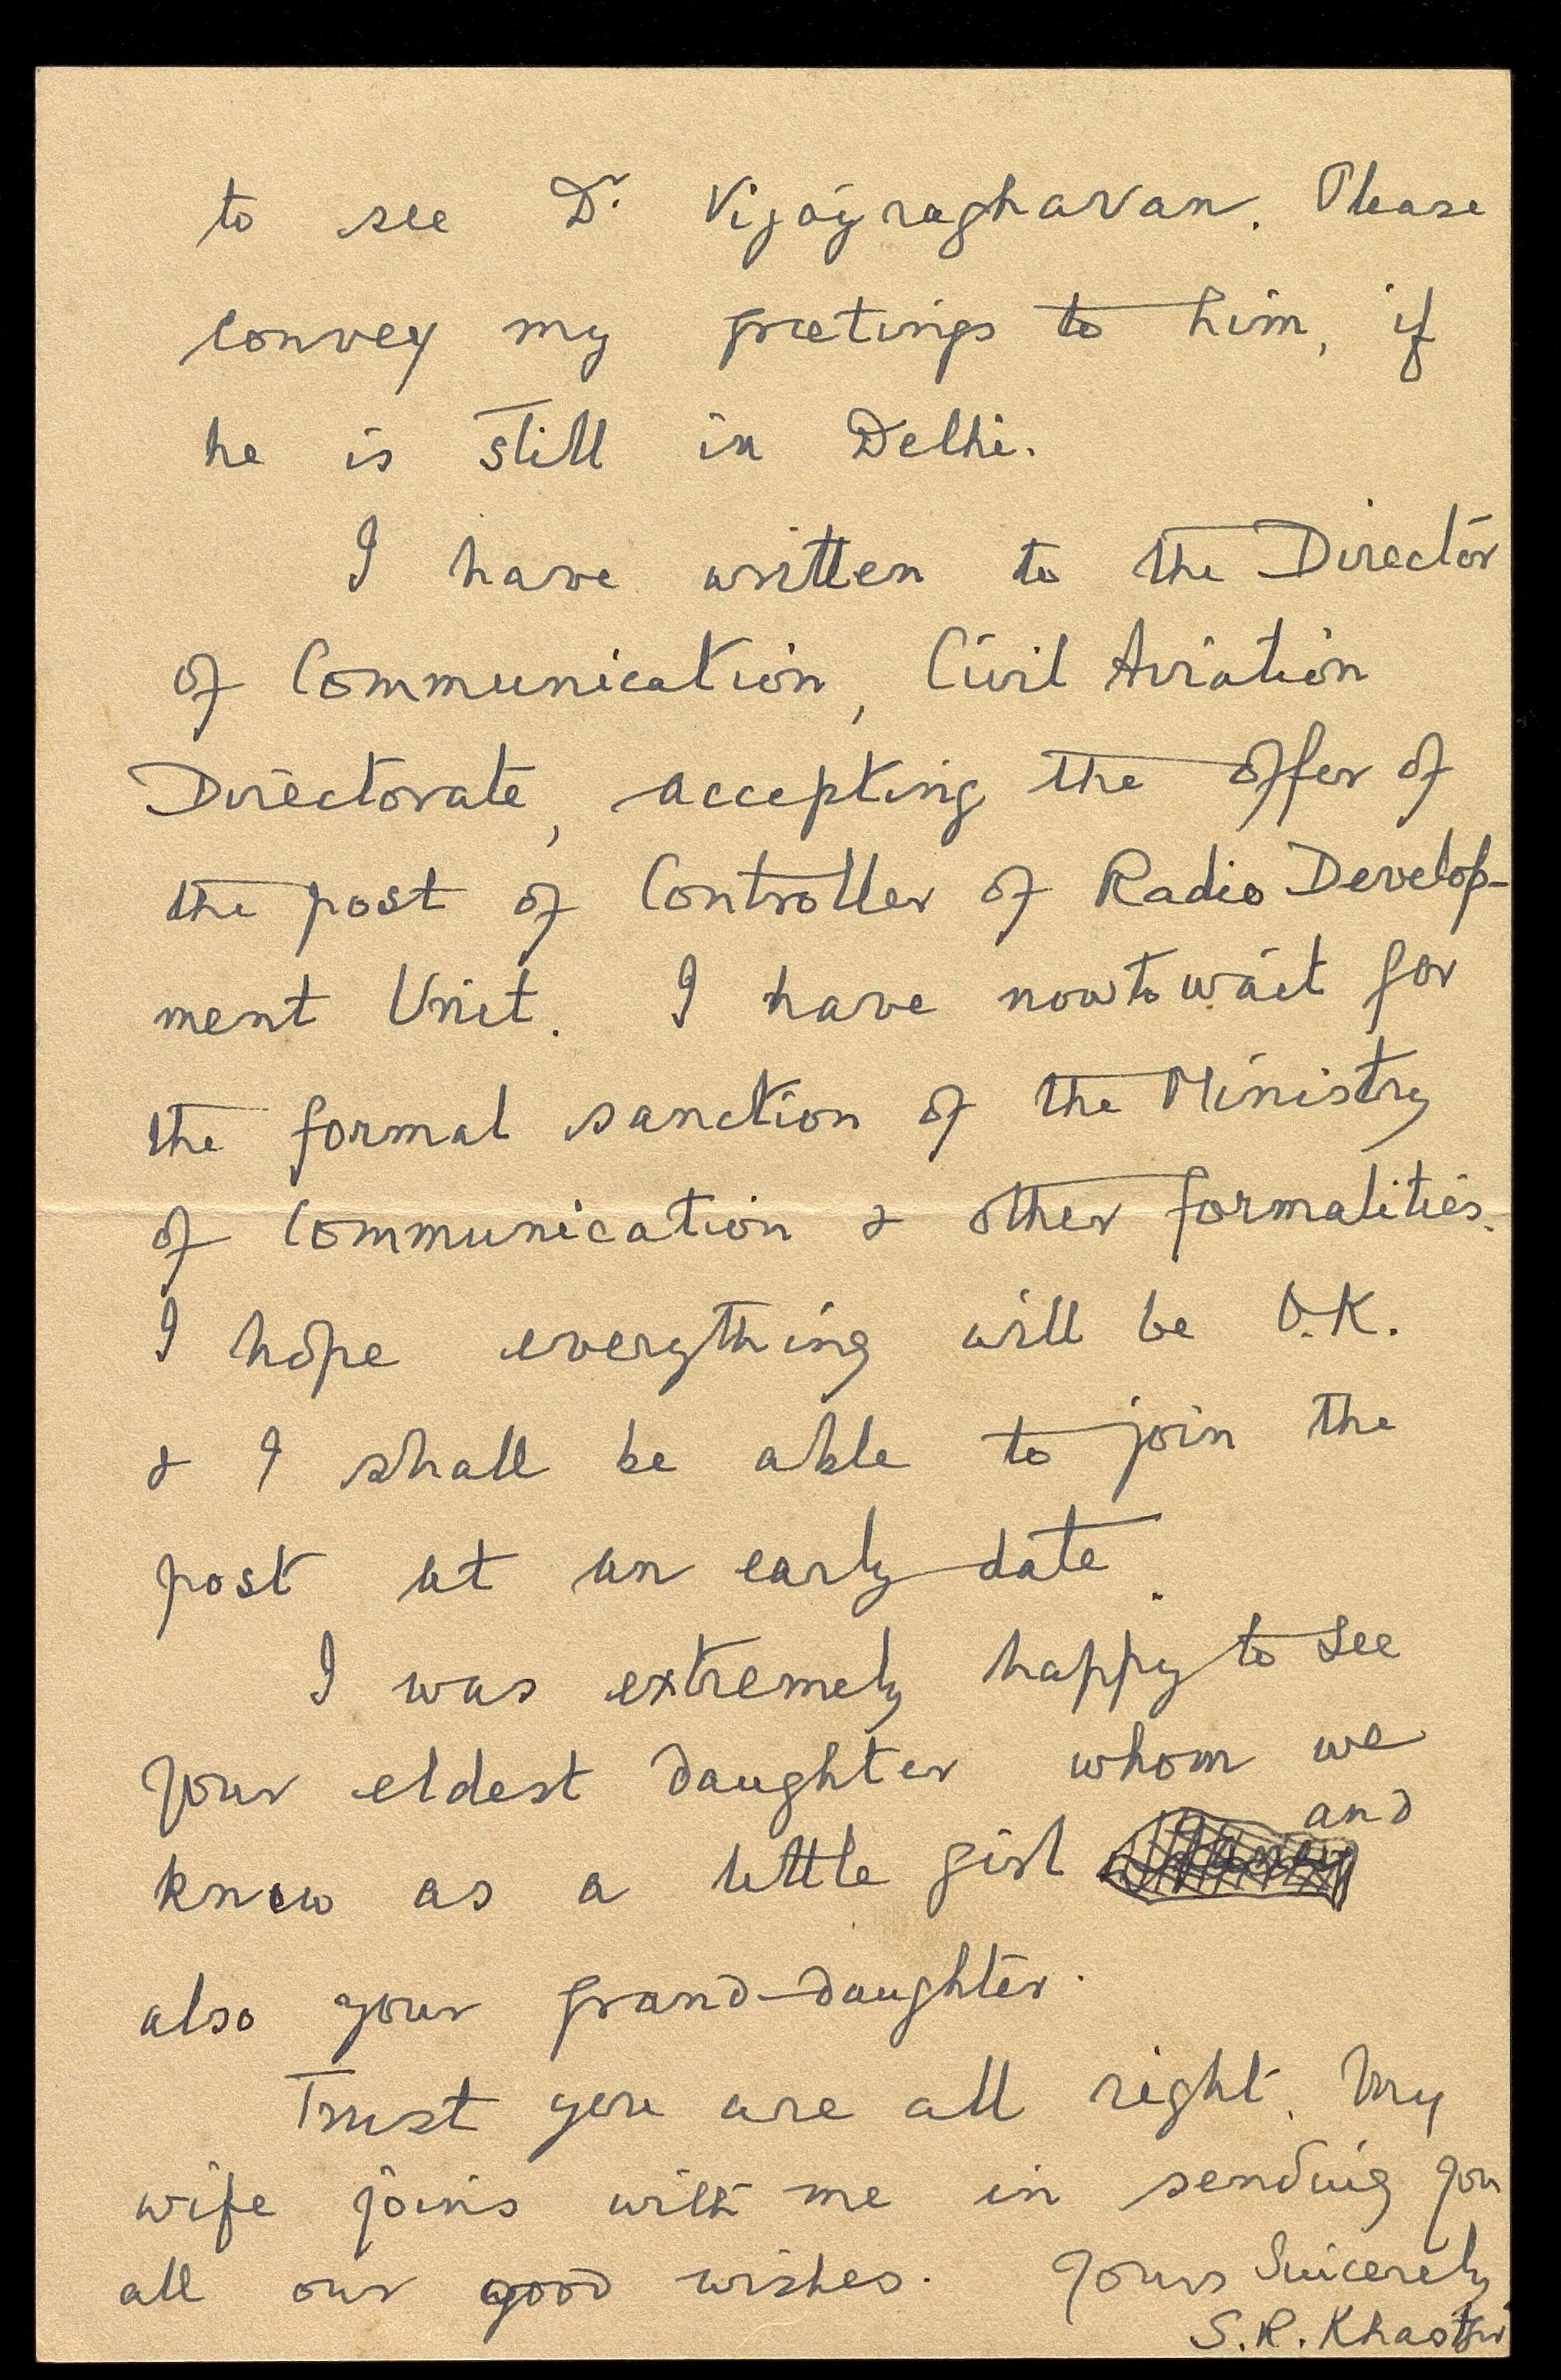 to see Dr. Vijayraghavan. Please
convey my greetings to him, if
he is still in Delhi.
I have written to the Director
of Communication, Civil Aviation
Directorate, accepting the offer of
the post of Controller of Radio Develop-
ment Unit. I have now to wait for
the formal sanction of the Ministry
of Communication & other formalities.
I hope everything will be O.K.
& I shall be able to join the
post at an early date.
I was extremely happy to see
your eldest daughter whom we
knew as a little girl and
also your grand-daughter.
Trust you are all right. My
wife joins with me in sending you
all our good wishes. Yours Sincerely
S.R. Khastgir